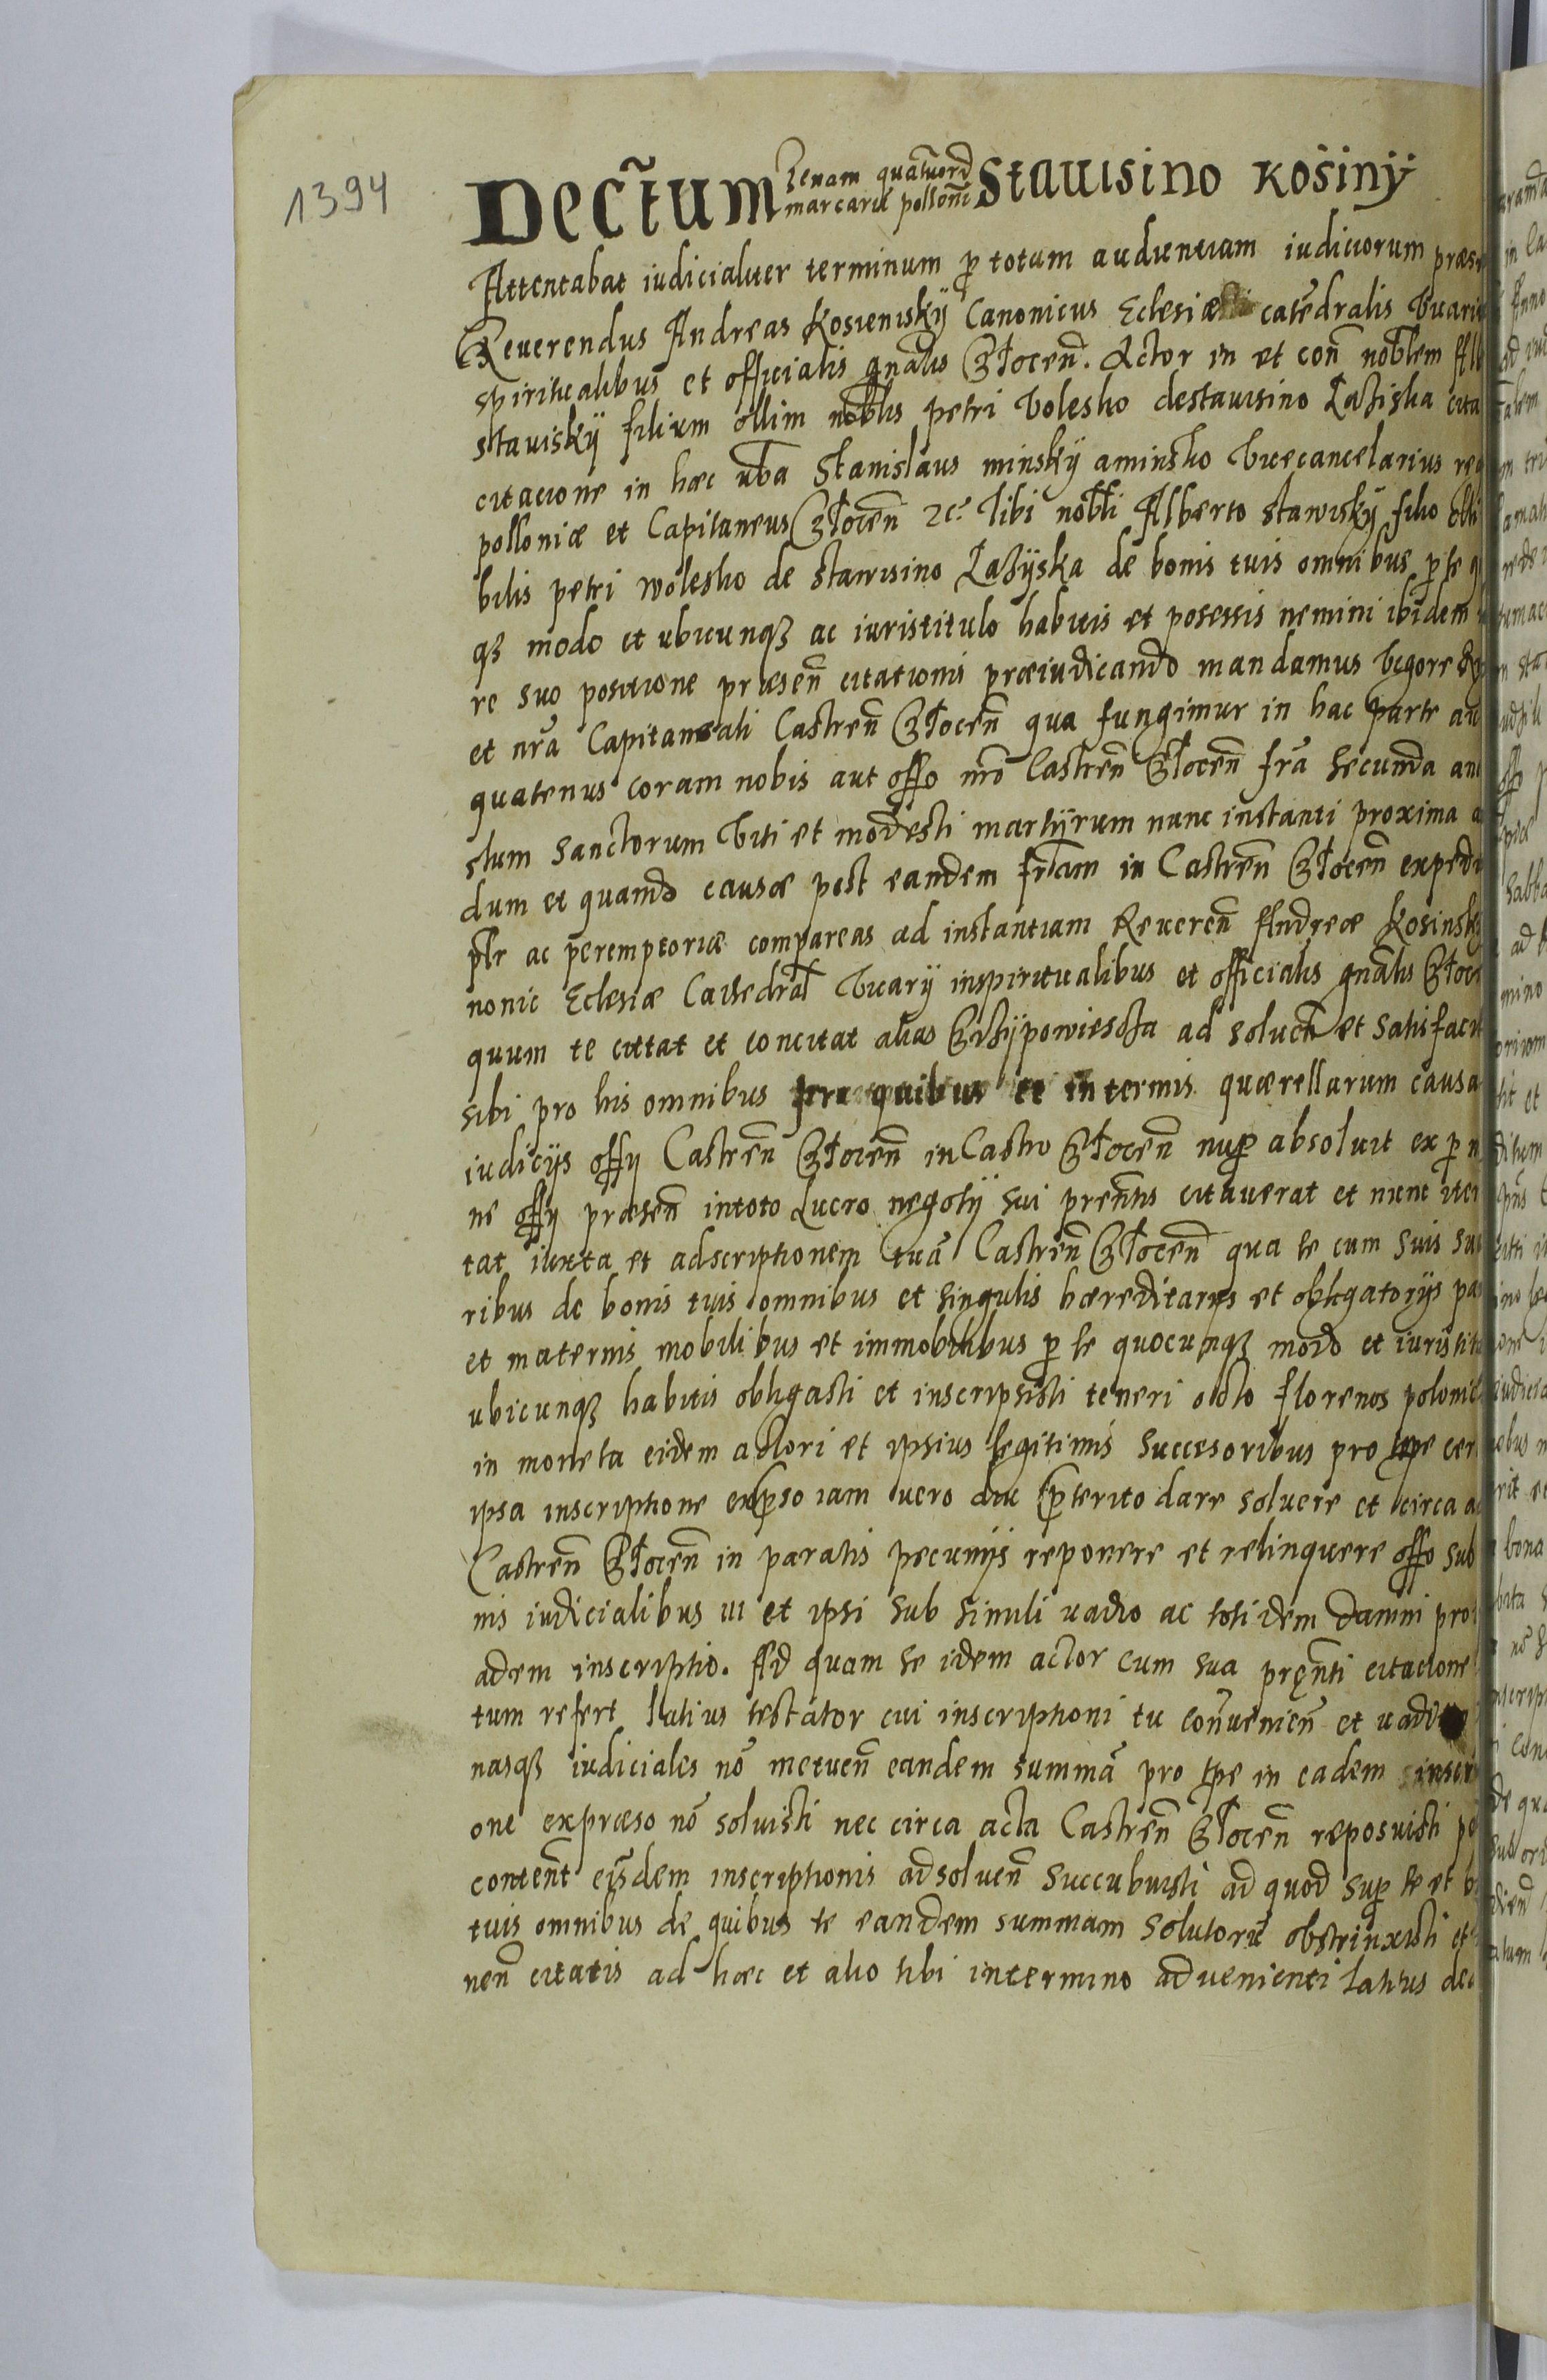 1394
Dec̃tum penam quatuord marcarũ pollonĩ Stauisino Kosiny
Attentabat iudicialiter terminum p totum audientiam iudiciorum præs
Reuerendus Andreas Kosienisky Canonicus Eclesiæ catedralis Vicari
spiritualibus et officialis gnãlis Płocen̄. Actor in et con̄ nobłem Al
Stauisky filium ollim nobłis petri Volesko destauisino Łaziska cita
citacione in hæc uba Stanislaus minsky aminsko Vicecancelarius re
polloniæ et Capitaneus Płocen̄ zc. Tibi nobłi Alberto Stawisky filio olli
bilis petri wolesko de stawisino Łazyska de bonis tuis omnibus p te q
qz modo et ubicunqz ac iuristitulo habitis et posessis nemini ibidem
re suo positione præsen̄ citationis præiudicando mandamus Vigore
et nrã Capitaneali Castren̄ Płocen̄ qua fungimur in hac parte au
quatenus coram nobis aut offo nrõ Castren̄ Płocen̄ frã secunda an
stum Sanctorum Viti et modesti martyrum nunc instanti proxima a
dum et quando causæ post eandem friam in Castren̄ Płocen̄ expedi
płr ac peremptoriæ compareas ad instantiam Reueren̄ Andreæ Kosinsk
nonic Eclesiæ Cathedrał Vicary inspiritualibus et officialis gnãlis Płoce
quum te cittat et concitat alias Przypowiescza ad soluen̄ et Satisfaci
sibi pro his omnibus pro quibus te in termis quærellarum causa
iudicijs offy Castren̄ Płocen̄ in Castro Płocen̄ nup absoluit ex p n
ne offy præsen̄ intoto Lucro negoty sui prẽntis citauerat et nunc iter
tat iuxta et adscriptionem tuã Castren̄ Płocen̄ qua te cum suis su
ribus de bonis tuis omnibus et singulis hæreditarys et obligatorys pa
et maternis mobilibus et immobilibus p te quocunqz modo et iuristitu
ubicunqz habitis obligasti et inscripsisti teneri octo florenos polonic
in moneta eidem actori et ipsius legitimis Succesoribus pro tpe cer
ipsa inscriptione expso iam uero diu pterito dare soluere et circa a
Castren̄ Płocen̄ in paratis pecunijs reponere et relinquere offo sub
nis iudicialibus III et ipsi sub simili uadio ac totidem damni pro
adem inscriptio. Ad quam se idem actor cum sua pręnti citacione
tum refert latius testator cui inscriptioni tu con̄uenien̄ et uadi
nasqz iudiciales nõ metuen̄ eandem summã pro tpe in eadem inscri
one expræso nõ soluisti nec circa acta Castren̄ Płocen̄ reposuisti pe
content̄ eisdem inscriptionis adsoluen̄ Succubuisti ad quod sup te et b
tuis omnibus de quibus te eandem summam Solutorũ obstrinxisti et
nen̄ citatis ad hæc et alio tibi intermino aduenienti latius dec